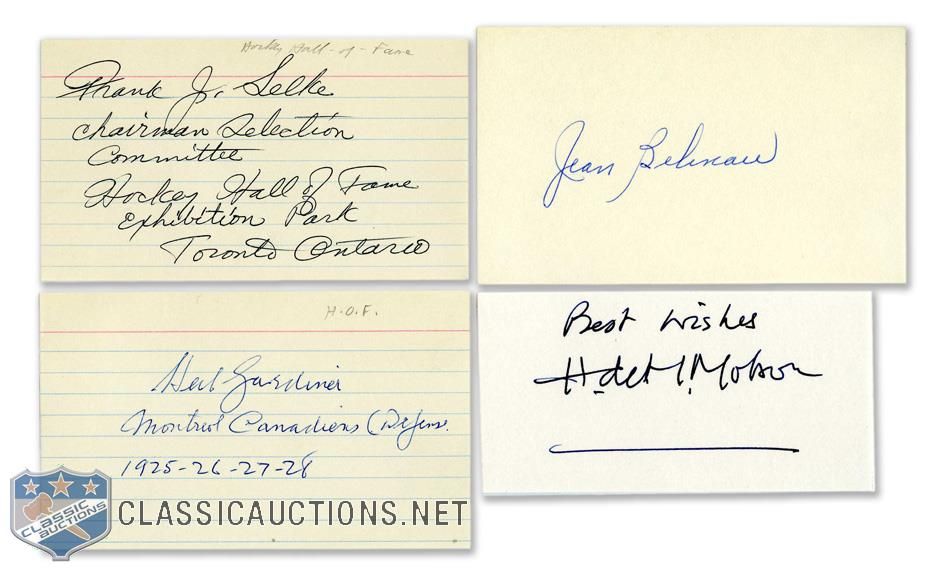 Hockey Hall-of-Fame
Frank J. Selke
Chairman Selection
Committee
Hockey Hall of Fame
Exhibition Park
Toronto Ontario
Jean Beliveau
H.O.F.
Herb Gardiner
Montreal Canadiens (Defense.
1925-26-27-28
Best Wishes
H. de M. Molson
CLASSIC
AUCTIONS
CLASSICAUCTIONS.NET